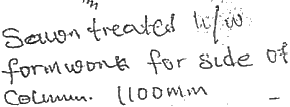 Sawn treated h/w
formwork for side of
Column. 1100mm -